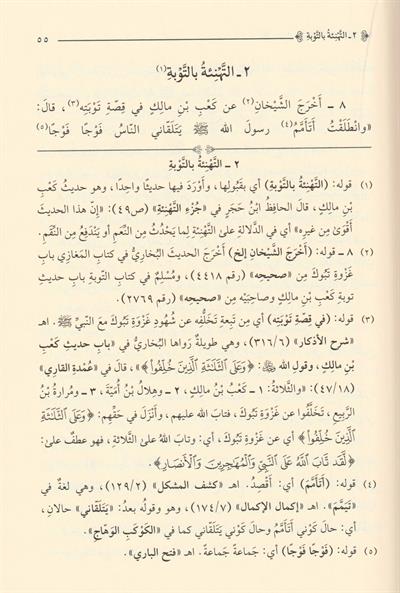 ٢ ـ التَّهْنِئَةُ بالتَّوْبَةِ ٥٥
٢ ـ التَّهْنِئَةُ بالتَّوْبَةِ(١)
٨ ـ أَخْرَجَ الشَّيْخَانِ(٢) عن كَعْبِ بْنِ مالِكٍ في قِصّةِ تَوْبَتِه(٣)، قالَ:
«وانْطَلَقْتُ أَتَأَمَّمُ(٤) رسولَ الله ﷺ يَتَلَقّاني النّاسُ فَوْجًا فَوْجًا(٥)
٢ ـ التَّهْنِئَةُ بالتَّوْبَةِ
(١) قوله: (التَّهْنِئَةُ بالتَّوْبَةِ) أي بقَبُولِها، وأَوْرَدَ فيها حديثًا واحِدًا، وهو حديثُ كَعْبِ
بْنِ مالِكٍ، قالَ الحافِظُ ابنُ حَجَرٍ في «جُزْءِ التَّهْنِئَةِ» (ص٤٩): «إنّ هذا الحديثَ
أَقْوَىٰ مِن غيرِه» أي في الدَّلالةِ علىٰ التَّهْنِئَةِ لِما يَحْدُثُ مِن النِّعَمِ أو يَنْدَفِعُ مِن النِّقَمِ.
(٢) ٨ ـ قوله: (أَخْرَجَ الشَّيْخَانِ إلخ) أَخْرَجَ الحديثَ البُخاريُّ في كتابِ المَغازِي بابِ
غَزْوةِ تَبُوكَ مِن «صحيحِه» (رقم ٤٤١٨)، ومُسْلِمٌ في كتابِ التّوبةِ بابِ حديثِ
توبةِ كَعْبِ بْنِ مالكٍ وصاحِبَيْه مِن «صحيحِه» (رقم ٢٧٦٩).
(٣) قوله: (في قِصّةِ تَوْبَتِه) أي مِن تَبِعةِ تَخَلُّفِه عن شُهُودِ غَزْوَةِ تَبُوكَ مع النّبيِّ ﷺ. اهـ
«شرح الأذكار» (٣١٦/٦)، وهي طويلةٌ رَواها البُخاريُّ في «بابِ حديثِ كَعْبِ
بْنِ مالِكٍ، وقولِ الله : ﴿وَعَلَى ٱلثَّلَٰثَةِ ٱلَّذِينَ خُلِّفُوا۟﴾»، قالَ في «عُمْدةِ القاري»
(٤٧/١٨): «والثّلاثةُ: ١ ـ كَعْبُ بْنُ مالِكٍ، ٢ ـ وهِلالُ بْنُ أُمَيّةَ، ٣ ـ ومُرارةُ بْنُ
الرَّبِيعِ، تَخَلَّفُوا عن غَزْوةِ تَبُوكَ، فتابَ الله عليهم، وأَنْزَلَ في حَقِّهم: ﴿وَعَلَى ٱلثَّلَٰثَةِ
ٱلَّذِينَ خُلِّفُوا۟﴾ أي عن غَزْوةِ تَبُوكَ، أي: وتابَ اللهُ علىٰ الثّلاثةِ، فهو عطفٌ علىٰ:
﴿لَّقَد تَّابَ ٱللَّهُ عَلَى ٱلنَّبِىِّ وَٱلْمُهَٰجِرِينَ وَٱلْأَنصَارِ﴾.
(٤) قوله: (أَتَأَمَّمُ) أي: أَقْصِدُ. اهـ «كشف المشكل» (١٢٩/٢)، وهي لغةٌ في
«تَيَمَّمَ». اهـ «إكمال الإكمال» (١٧٤/٧)، وهو وقولُه بعدُ: «يَتَلَقّاني» حالانِ،
أي: حالَ كَوْنِي أَتَأَمَّمُ وحالَ كَوْنِي يَتَلَقّاني كما في «الكَوْكَبِ الوَهّاجِ».
(٥) قوله: (فَوْجًا فَوْجًا) أي: جَماعةً جَماعةً. اهـ «فتح الباري».